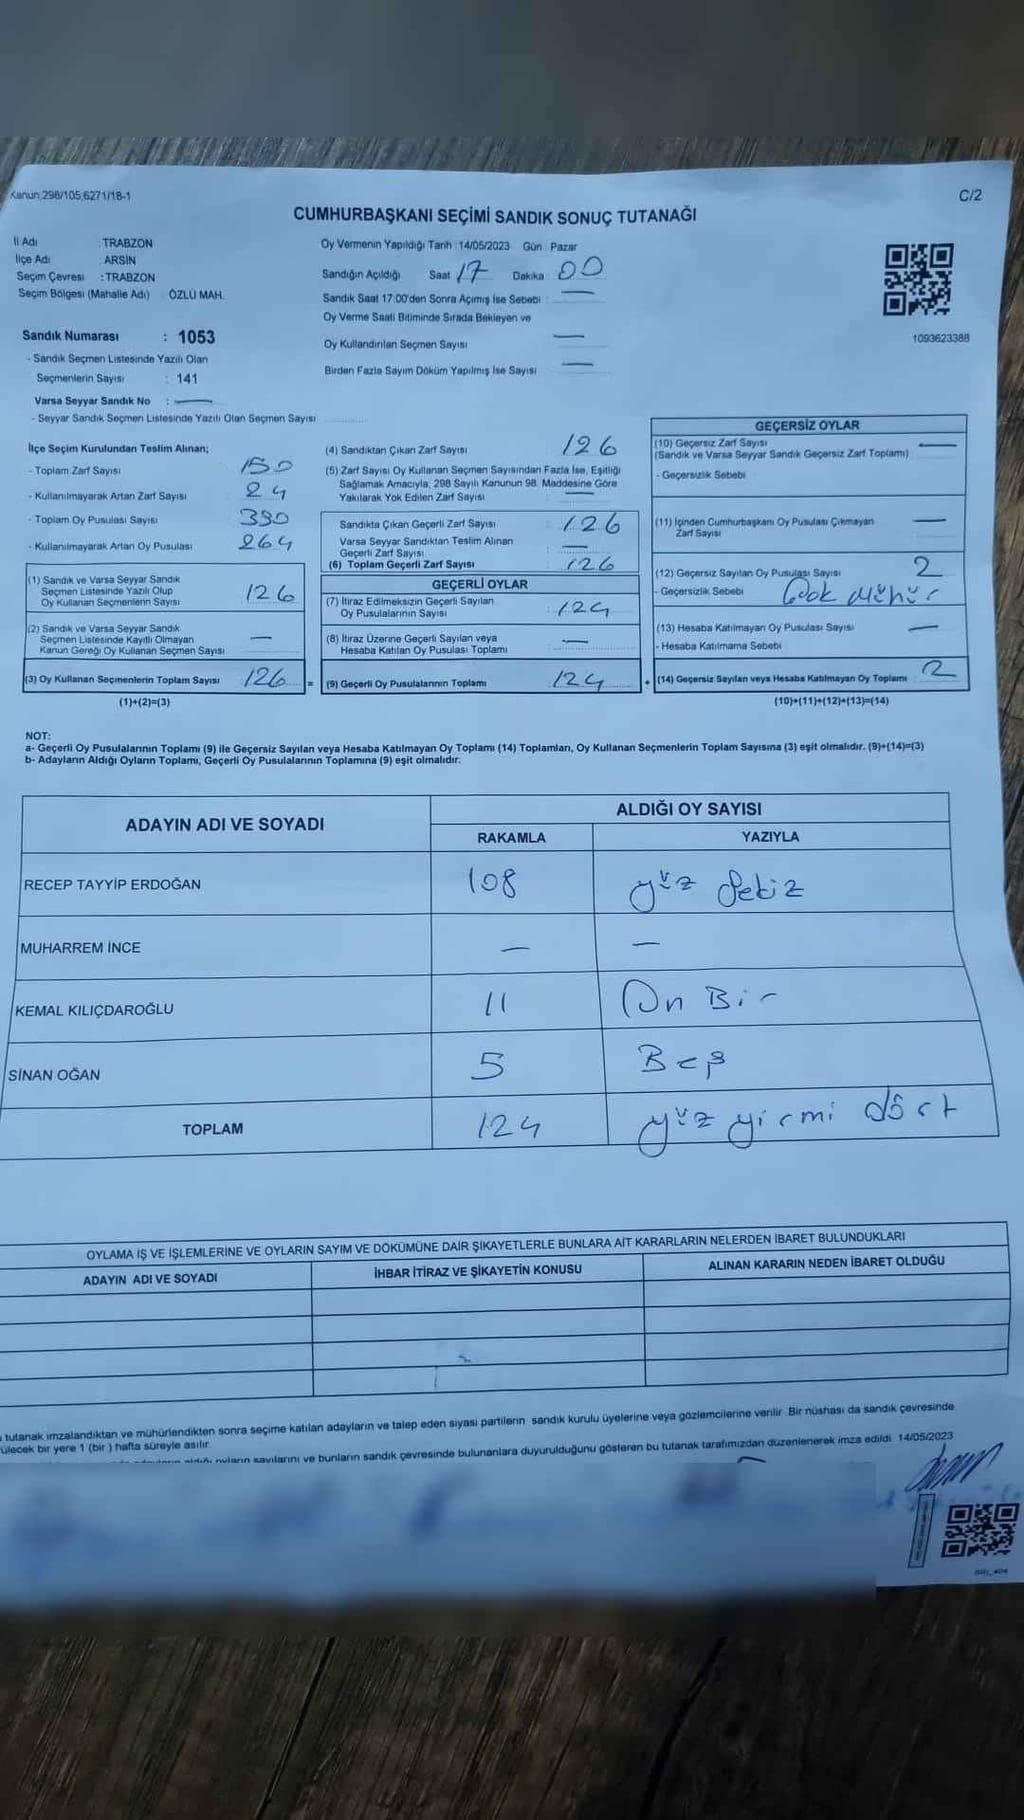 Kanun 298/105,6271/18-1
C/2
CUMHURBAŞKANI SEÇİMİ SANDIK SONUÇ TUTANAĞI
İl Adı : TRABZON
İlçe Adı : ARSİN
Seçim Çevresi : TRABZON
Seçim Bölgesi (Mahalle Adı) ÖZLÜ MAH.
Oy Vermenin Yapıldığı Tarih : 14/05/2023 Gün : Pazar
Sandığın Açıldığı Saat 17 Dakika 00
Sandık Saat 17:00'den Sonra Açımış İse Sebebi : —
Oy Verme Saati Bitiminde Sırada Bekleyen ve
Oy Kullandırılan Seçmen Sayısı —
Birden Fazla Sayım Döküm Yapılmış İse Sayısı —
1093623388
Sandık Numarası : 1053
- Sandık Seçmen Listesinde Yazılı Olan
Seçmenlerin Sayısı : 141
Varsa Seyyar Sandık No : —
- Seyyar Sandık Seçmen Listesinde Yazılı Olan Seçmen Sayısı
İlçe Seçim Kurulundan Teslim Alınan;
- Toplam Zarf Sayısı 150
- Kullanılmayarak Artan Zarf Sayısı 24
- Toplam Oy Pusulası Sayısı 390
- Kullanılmayarak Artan Oy Pusulası 264
(1) Sandık ve Varsa Seyyar Sandık
Seçmen Listesinde Yazılı Olup
Oy Kullanan Seçmenlerin Sayısı 126
(2) Sandık ve Varsa Seyyar Sandık
Seçmen Listesinde Kayıtlı Olmayan
Kanun Gereği Oy Kullanan Seçmen Sayısı —
(3) Oy Kullanan Seçmenlerin Toplam Sayısı 126 =
(1)+(2)=(3)
(4) Sandıktan Çıkan Zarf Sayısı 126
(5) Zarf Sayısı Oy Kullanan Seçmen Sayısından Fazla İse, Eşitliği
Sağlamak Amacıyla, 298 Sayılı Kanunun 98. Maddesine Göre
Yakılarak Yok Edilen Zarf Sayısı —
Sandıkta Çıkan Geçerli Zarf Sayısı : 126
Varsa Seyyar Sandıktan Teslim Alınan
Geçerli Zarf Sayısı : —
(6) Toplam Geçerli Zarf Sayısı : 126
GEÇERLİ OYLAR
(7) İtiraz Edilmeksizin Geçerli Sayılan
Oy Pusulalarının Sayısı : 124
(8) İtiraz Üzerine Geçerli Sayılan veya
Hesaba Katılan Oy Pusulası Toplamı —
(9) Geçerli Oy Pusulalarının Toplamı 124 +
GEÇERSİZ OYLAR
(10) Geçersiz Zarf Sayısı —
(Sandık ve Varsa Seyyar Sandık Geçersiz Zarf Toplamı)
- Geçersizlik Sebebi
(11) İçinden Cumhurbaşkanı Oy Pusulası Çıkmayan
Zarf Sayısı —
(12) Geçersiz Sayılan Oy Pusulası Sayısı 2
- Geçersizlik Sebebi Çok mühür
(13) Hesaba Katılmayan Oy Pusulası Sayısı —
- Hesaba Katılmama Sebebi
(14) Geçersiz Sayılan veya Hesaba Katılmayan Oy Toplamı 2
(10)+(11)+(12)+(13)=(14)
NOT:
a- Geçerli Oy Pusulalarının Toplamı (9) ile Geçersiz Sayılan veya Hesaba Katılmayan Oy Toplamı (14) Toplamları, Oy Kullanan Seçmenlerin Toplam Sayısına (3) eşit olmalıdır. (9)+(14)=(3)
b- Adayların Aldığı Oyların Toplamı, Geçerli Oy Pusulalarının Toplamına (9) eşit olmalıdır.
ADAYIN ADI VE SOYADI ALDIĞI OY SAYISI
RAKAMLA YAZIYLA
RECEP TAYYİP ERDOĞAN 108 yüz sekiz
MUHARREM İNCE — —
KEMAL KILIÇDAROĞLU 11 On Bir
SİNAN OĞAN 5 Beş
TOPLAM 124 yüz yirmi dört
OYLAMA İŞ VE İŞLEMLERİNE VE OYLARIN SAYIM VE DÖKÜMÜNE DAİR ŞİKAYETLERLE BUNLARA AİT KARARLARIN NELERDEN İBARET BULUNDUKLARI
ADAYIN ADI VE SOYADI İHBAR İTİRAZ VE ŞİKAYETİN KONUSU ALINAN KARARIN NEDEN İBARET OLDUĞU
tutanak imzalandıktan ve mühürlendikten sonra seçime katılan adayların ve talep eden siyasi partilerin sandık kurulu üyelerine veya gözlemcilerine verilir. Bir nüshası da sandık çevresinde
ülecek bir yere 1 (bir) hafta süreyle asılır.
oyların sayılarını ve bunların sandık çevresinde bulunanlara duyurulduğunu gösteren bu tutanak tarafımızdan düzenlenerek imza edildi. 14/05/2023